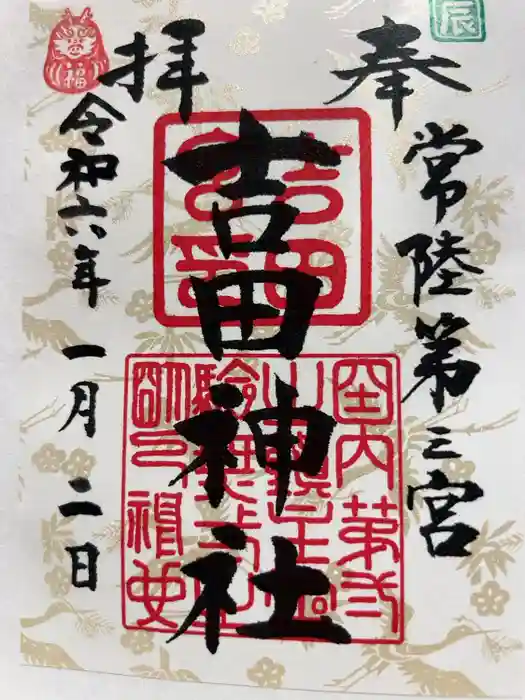 奉
拝
常陸第三宮
吉田神社
令和六年一月二日
辰
福